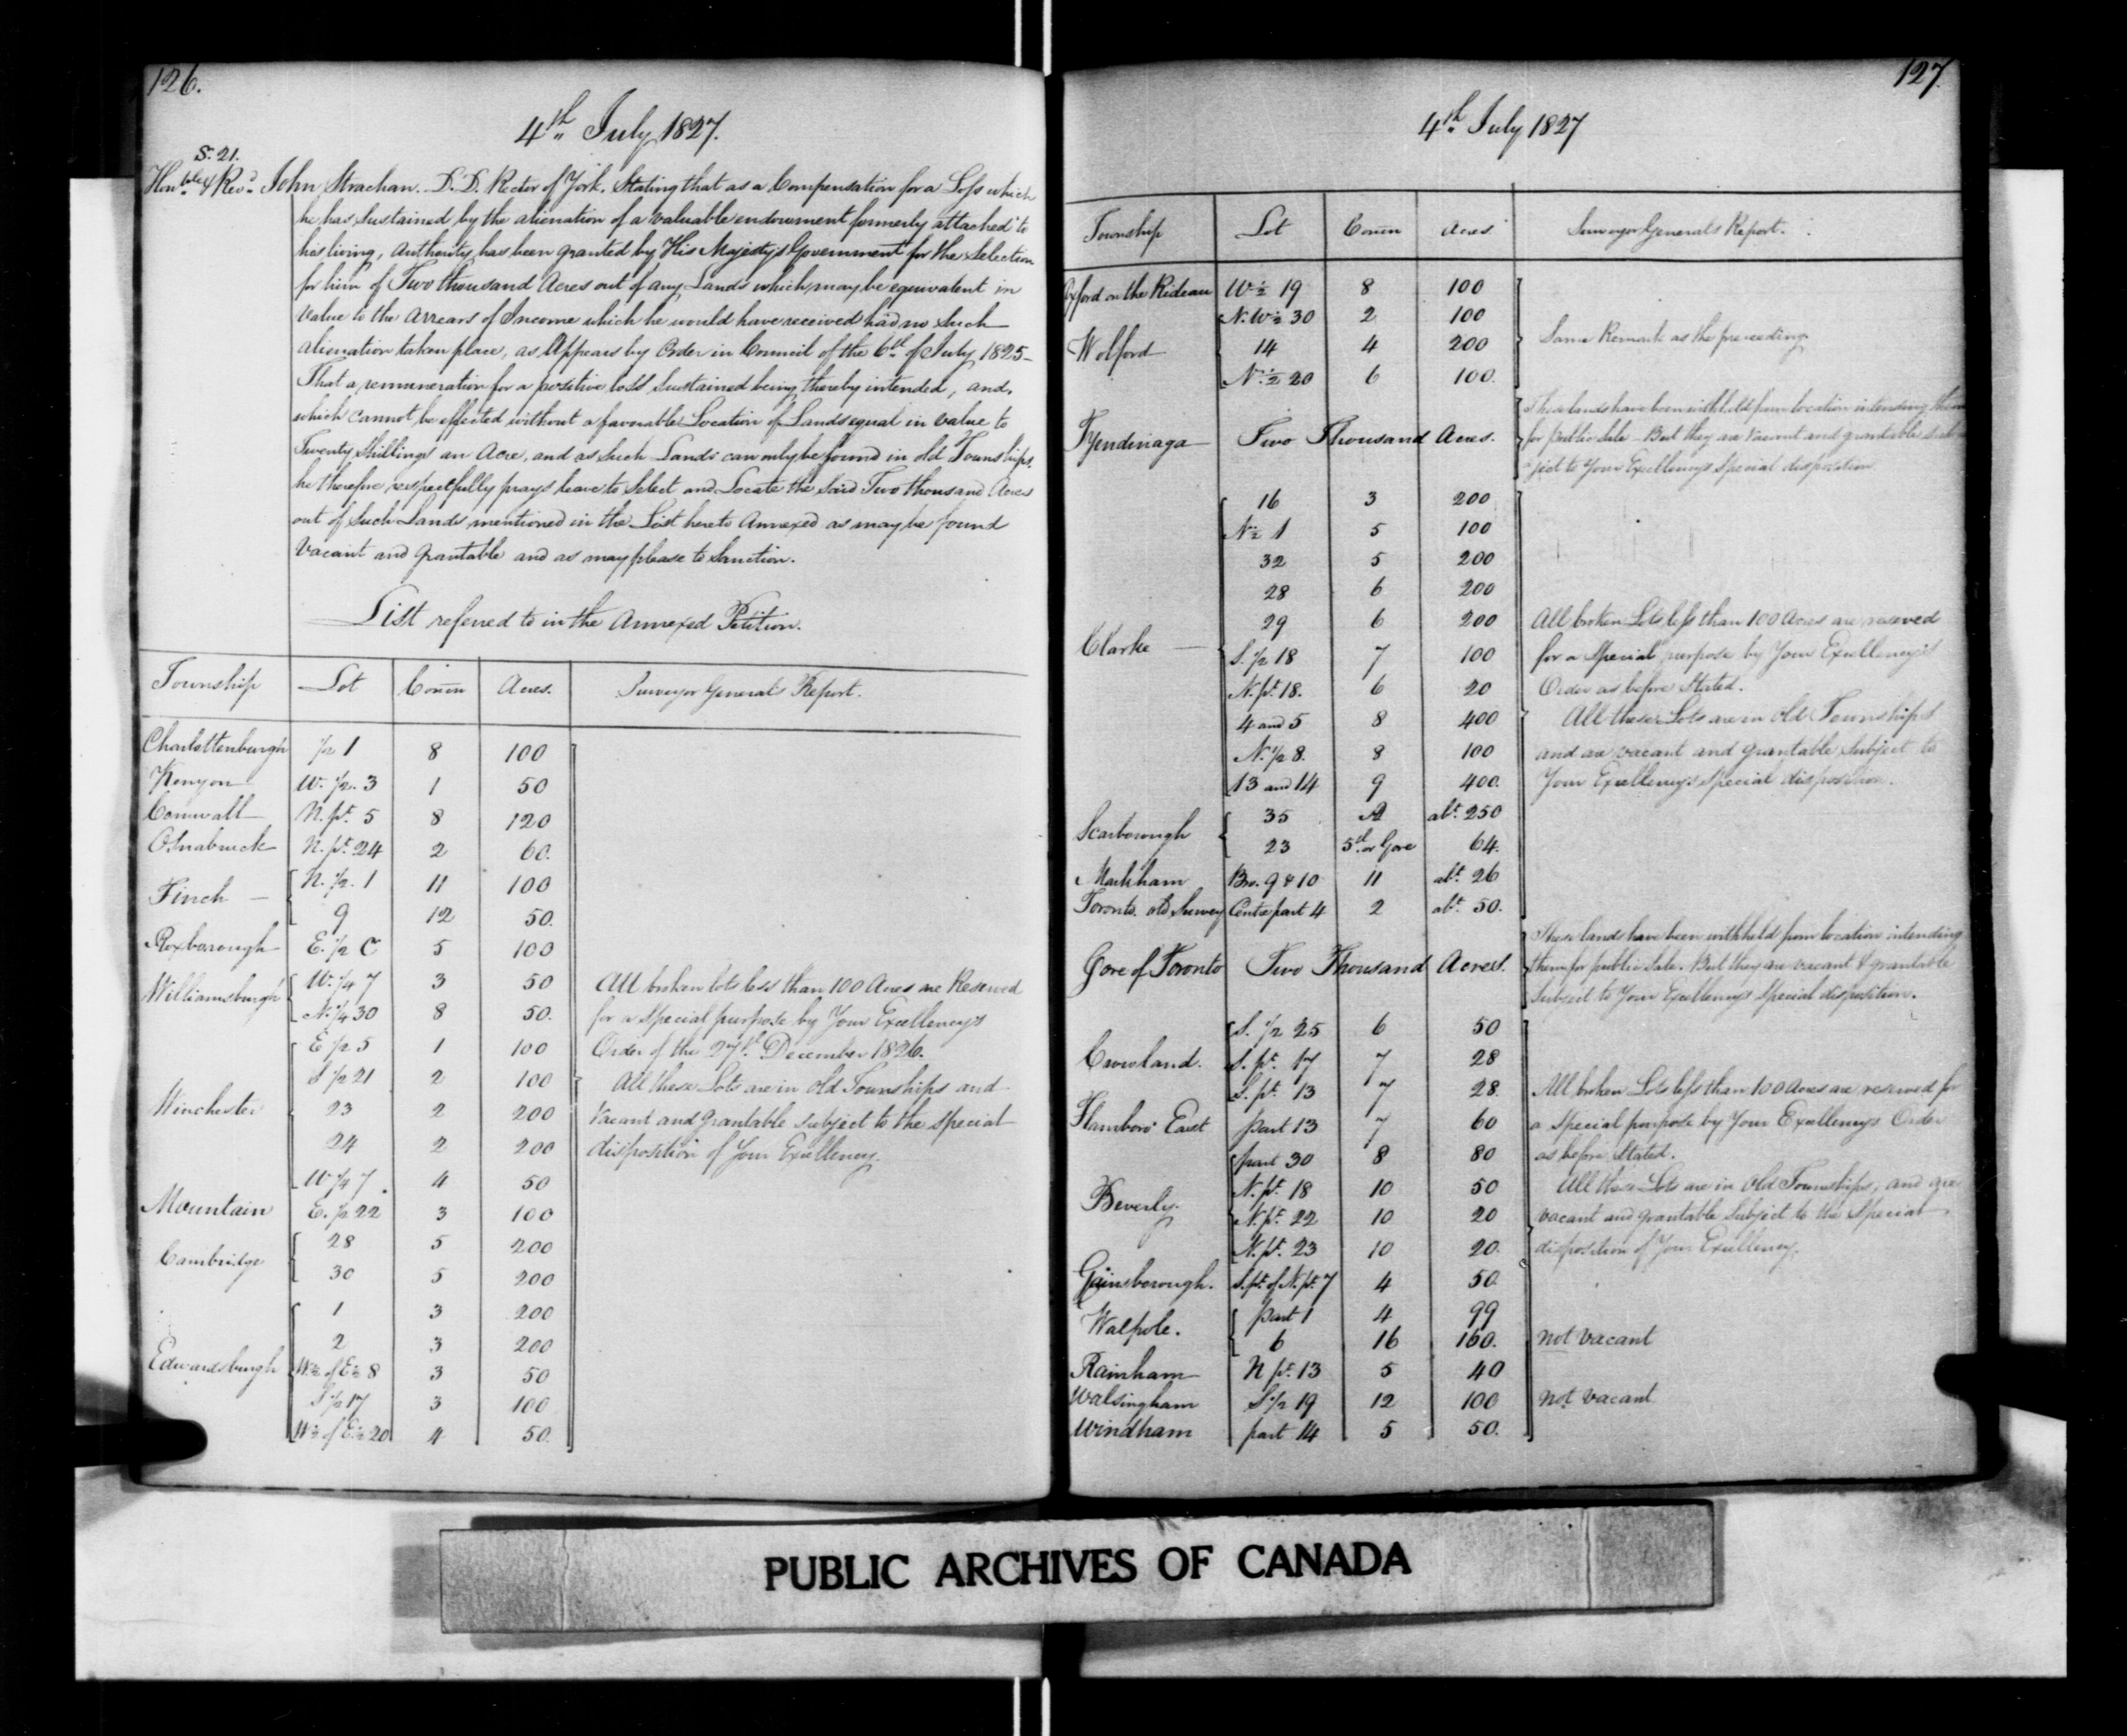 126.
4th July 1827.
S. 21.
Honble & Revd John Strachan. D.D. Rector of York. Stating that as a Compensation for a Loss which
he has sustained by the alienation of a valuable endowment formerly attached to
his living, Authority has been granted by His Majesty's Government for the Selection
for him of Two thousand Acres out of any Lands which may be equivalent in
Value to the Arrears of Income which he would have received had no such
alienation taken place, as Appears by Order in Council of the 6th of July 1825-
That a remuneration for a positive loss sustained being thereby intended, and,
which cannot be effected without a favorable Location of Lands equal in value to
Twenty Shillings an Acre, and as such Lands can only be found in old Townships,
he therefore respectfully prays leave to Select and Locate the said Two thousand Acres
out of such Lands mentioned in the List hereto Annexed as may be found
Vacant and grantable and as may please to Sanction.
List referred to in the Annexed Petition.
Township Lot Conn Acres. Surveyor General's Report.
Charlottenburgh 1/2 1 8 100
Kenyon W. 1/2. 3 1 50
Cornwall N. pt. 5 8 120
Osnabruck N. pt. 24 2 60.
Finch N. 1/2. 1 11 100
9 12 50.
Roxborough E. 1/2 C 5 100
Williamsburgh W. 1/4 7 3 50 All broken lots less than 100 Acres are Reserved
N. 1/4 30 8 50. for a special purpose by Your Excellency's
E 1/2 5 1 100 Order of the 27th December 1826.
S 1/2 21 2 100 All these Lots are in old Townships and
Winchester 23 2 200 Vacant and grantable subject to the special
24 2 200 disposition of Your Excellency.
W 1/4 7 4 50
Mountain E. 1/2 22 3 100
Cambridge 28 5 200
30 5 200
1 3 200
2 3 200
Edwardsburgh W 1/2 of E 1/2 8 3 50
S 1/2 17 3 100
W 1/2 of E 1/2 20 4 50.
127.
4th July 1827
Township Lot Conn Acres. Surveyor General's Report.
Oxford on the Rideau W 1/2 19 8 100
N. W 1/2 30 2 100
Wolford 14 4 200 Same Remark as the preceeding.
N. 1/2 20 6 100.
These lands have been withheld from location intending them
Tyendinaga Two Thousand Acres. for public Sale - But they are Vacant and grantable sub-
ject to Your Excellency's Special disposition
16 3 200
N 1/2 1 5 100
32 5 200
28 6 200
29 6 200 All broken Lots less than 100 Acres are reserved
Clarke S. 1/2 18 7 100 for a special purpose by Your Excellency's
N. pt. 18. 6 20 Order as before stated.
4 and 5 8 400 All these Lots are in old Townships
N. 1/2 8. 8 100 and are vacant and grantable subject to
13 and 14 9 400. Your Excellency's special disposition.
Scarborough 35 A abt. 250
23 5th or Gore 64.
Markham Bro. 9 & 10 11 abt. 26
Toronto old Survey Centre part 4 2 abt. 50.
These lands have been withheld from location intending
Gore of Toronto Two Thousand Acres. them for public Sale. But they are vacant & grantable
Subject to Your Excellency's Special disposition.
S. 1/2 25 6 50
Crowland. S. pt. 17 7 28
S. pt. 13 7 28. All broken Lots less than 100 Acres are reserved for
Flamboro' East part 13 7 60 a special purpose by Your Excellency's Order
part 30 8 80 as before Stated.
N. pt. 18 10 50 All these Lots are in old Townships, and are
Beverly. N. pt. 22 10 20 vacant and grantable Subject to the Special
N. pt. 23 10 20. disposition of Your Excellency.
Gainsborough. S. pt. of N. pt. 7 4 50.
Walpole. part 1 4 99
6 16 160. not vacant
Rainham N pt. 13 5 40
Walsingham S. 1/2 19 12 100 not vacant
Windham part 14 5 50.
PUBLIC ARCHIVES OF CANADA